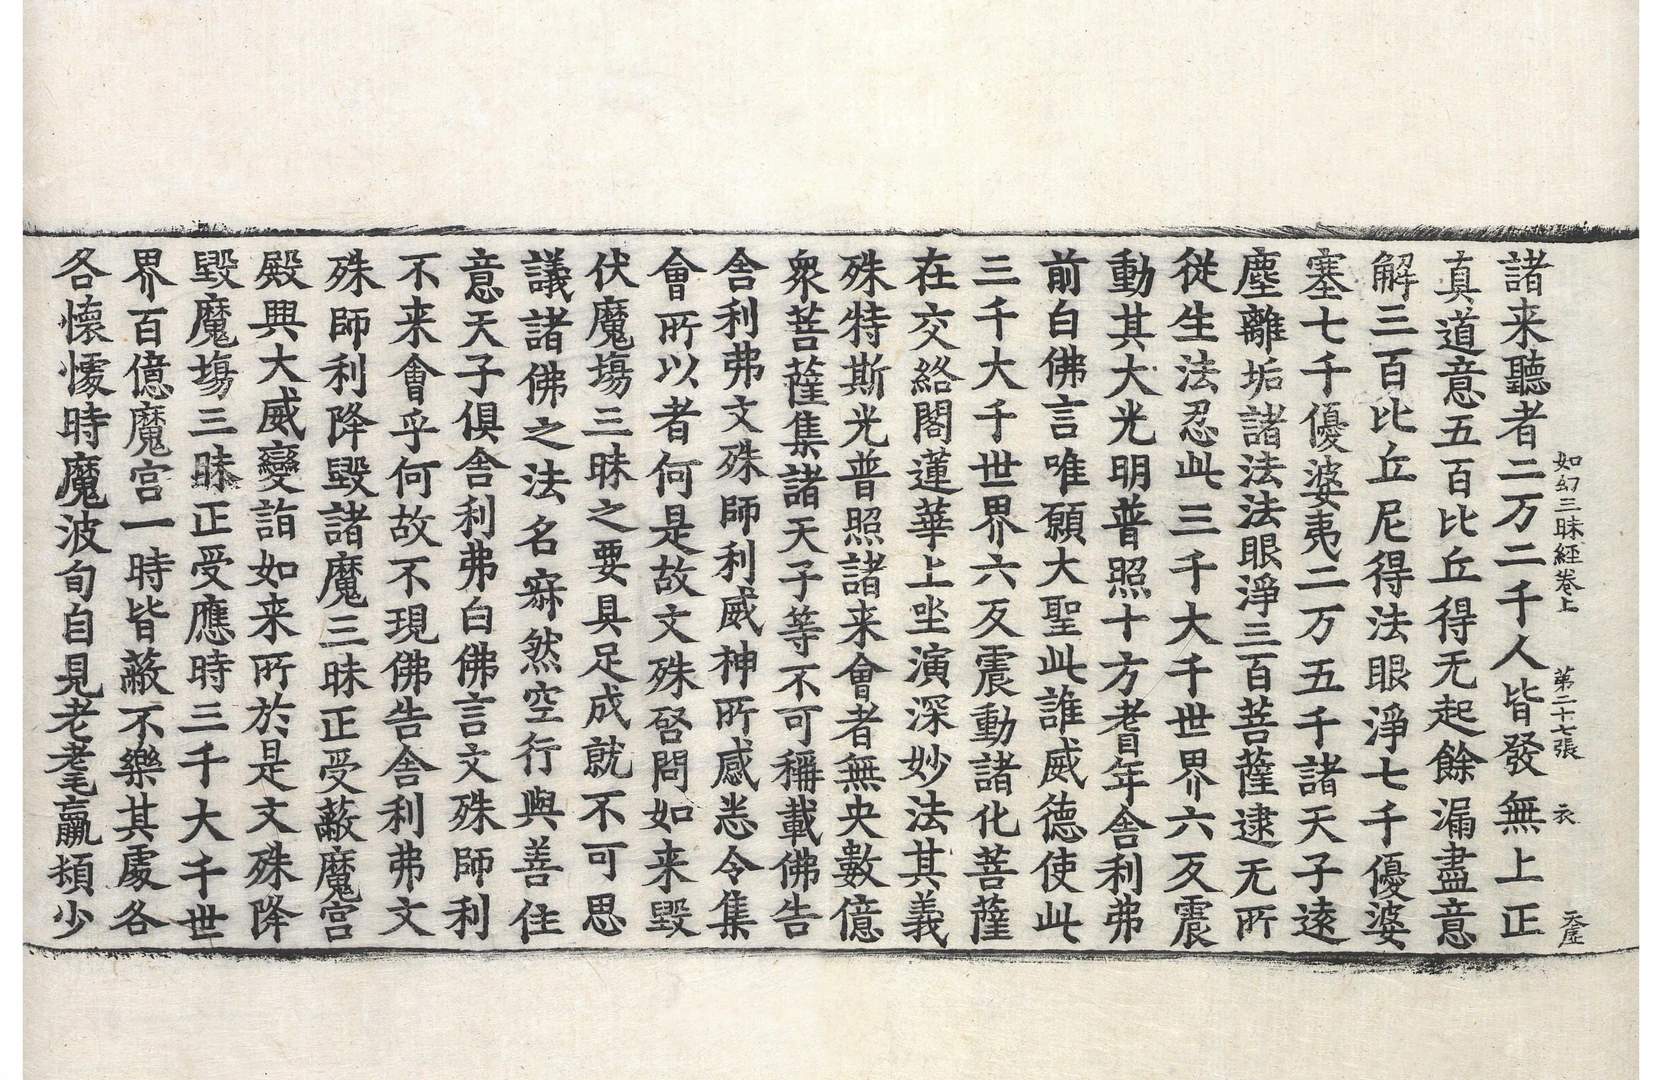 如幻三昧經卷上 第二十七張 衣
諸来聽者二万二千人皆發無上正
真道意五百比丘得无起餘漏盡意
解三百比丘尼得法眼淨七千優婆
塞七千優婆夷二万五千諸天子遠
塵離垢諸法法眼淨三百菩薩逮无所
従生法忍此三千大千世界六反震
動其大光明普照十方耆年舍利弗
前白佛言唯願大聖此誰威德使此
三千大千世界六反震動諸化菩薩
在交絡閣蓮華上坐演深妙法其義
殊特斯光普照諸来會者無央數億
衆菩薩集諸天子等不可稱載佛告
舍利弗文殊師利威神所感悉令集
會所以者何是故文殊啓問如来毀
伏魔塲三昧之要具足成就不可思
議諸佛之法名寂然空行與善住
意天子俱舍利弗白佛言文殊師利
不来會乎何故不現佛告舍利弗文
殊師利降毀諸魔三昧正受蔽魔宮
殿興大威變詣如来所於是文殊降
毀魔塲三昧正受應時三千大千世
界百億魔宮一時皆蔽不樂其處各
各懷懮時魔波旬自見老耄羸頹少